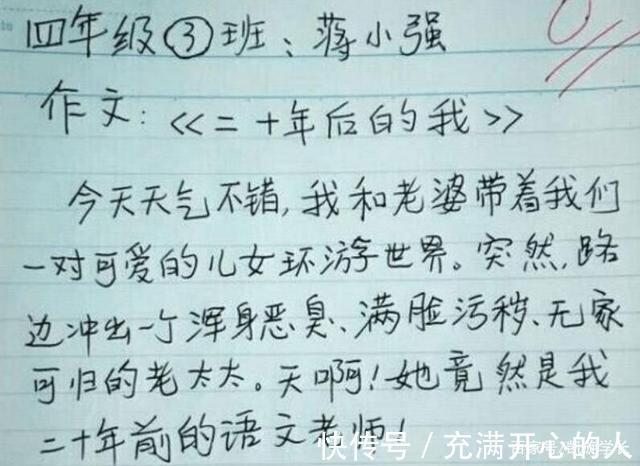 四年级③班：蒋小强
0
作文：<<二十年后的我>>
今天天气不错,我和老婆带着我们
一对可爱的儿女环游世界。突然,路
边冲出一个浑身恶臭、满脸污秽、无家
可归的老太太。天啊!她竟然是我
二十年前的语文老师!
快传号/充满开心的人